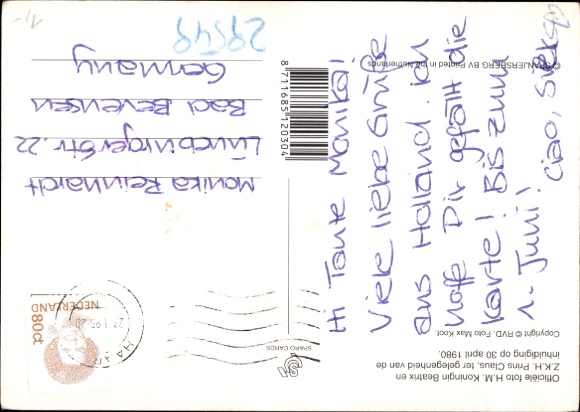 Hi Tante Monika!
Viele liebe Grüße
aus Holland. ich
hoffe Dir gefällt die
Karte! Bis zum
1. Juni!
ciao, Silke
Monika Reinhardt
Lüneburger Str. 22
Bad Bevensen
Germany
29549
1,-
8 711685 120304
© SPANJERSBERG BV Printed in the Netherlands
Officiële foto H.M. Koningin Beatrix en
Z.K.H. Prins Claus, ter gelegenheid van de
inhuldiging op 30 april 1980.
Copyright © RVD. Foto Max Koot
SPARO CARDS
NEDERLAND
80ct